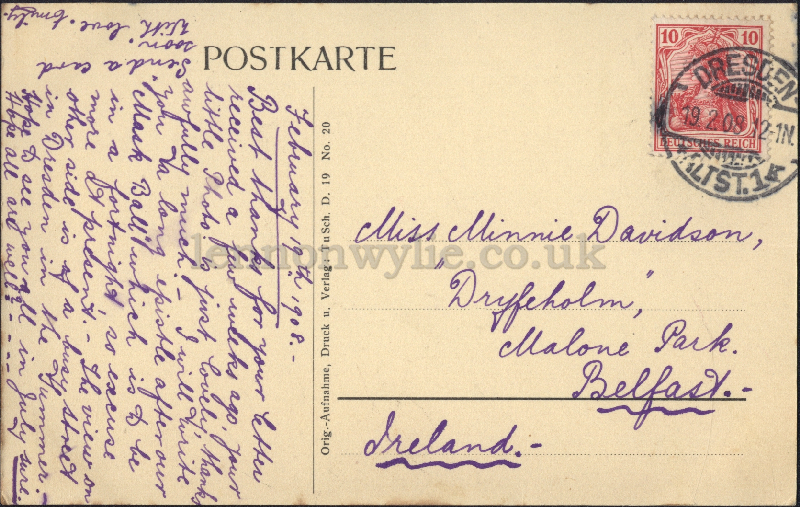 POSTKARTE
February 19th 1908.-
Best thanks for your letter
received a few weeks ago your
little Photo is just lovely, thanks
awfully much! - I will write
you a long epistle after our
Mask Ball which is to be
in a fortnight, so excuse
more at present. - The view on
other side is of a busy street
in Dresden in the Summer.
Hope to see you all in July sure.
Hope all are well? - - -
Send a card
soon.
With love. Emily.
Orig.-Aufnahme, Druck u. Verlag TuSch. D. 19 No. 20
10 10
DEUTSCHES REICH
DRESDEN
19.2.08. 12-1N.
ALTST. 1
Miss Minnie Davidson,
"Dryfeholm,"
Malone Park.
Belfast.-
Ireland.-
lennonwylie.co.uk